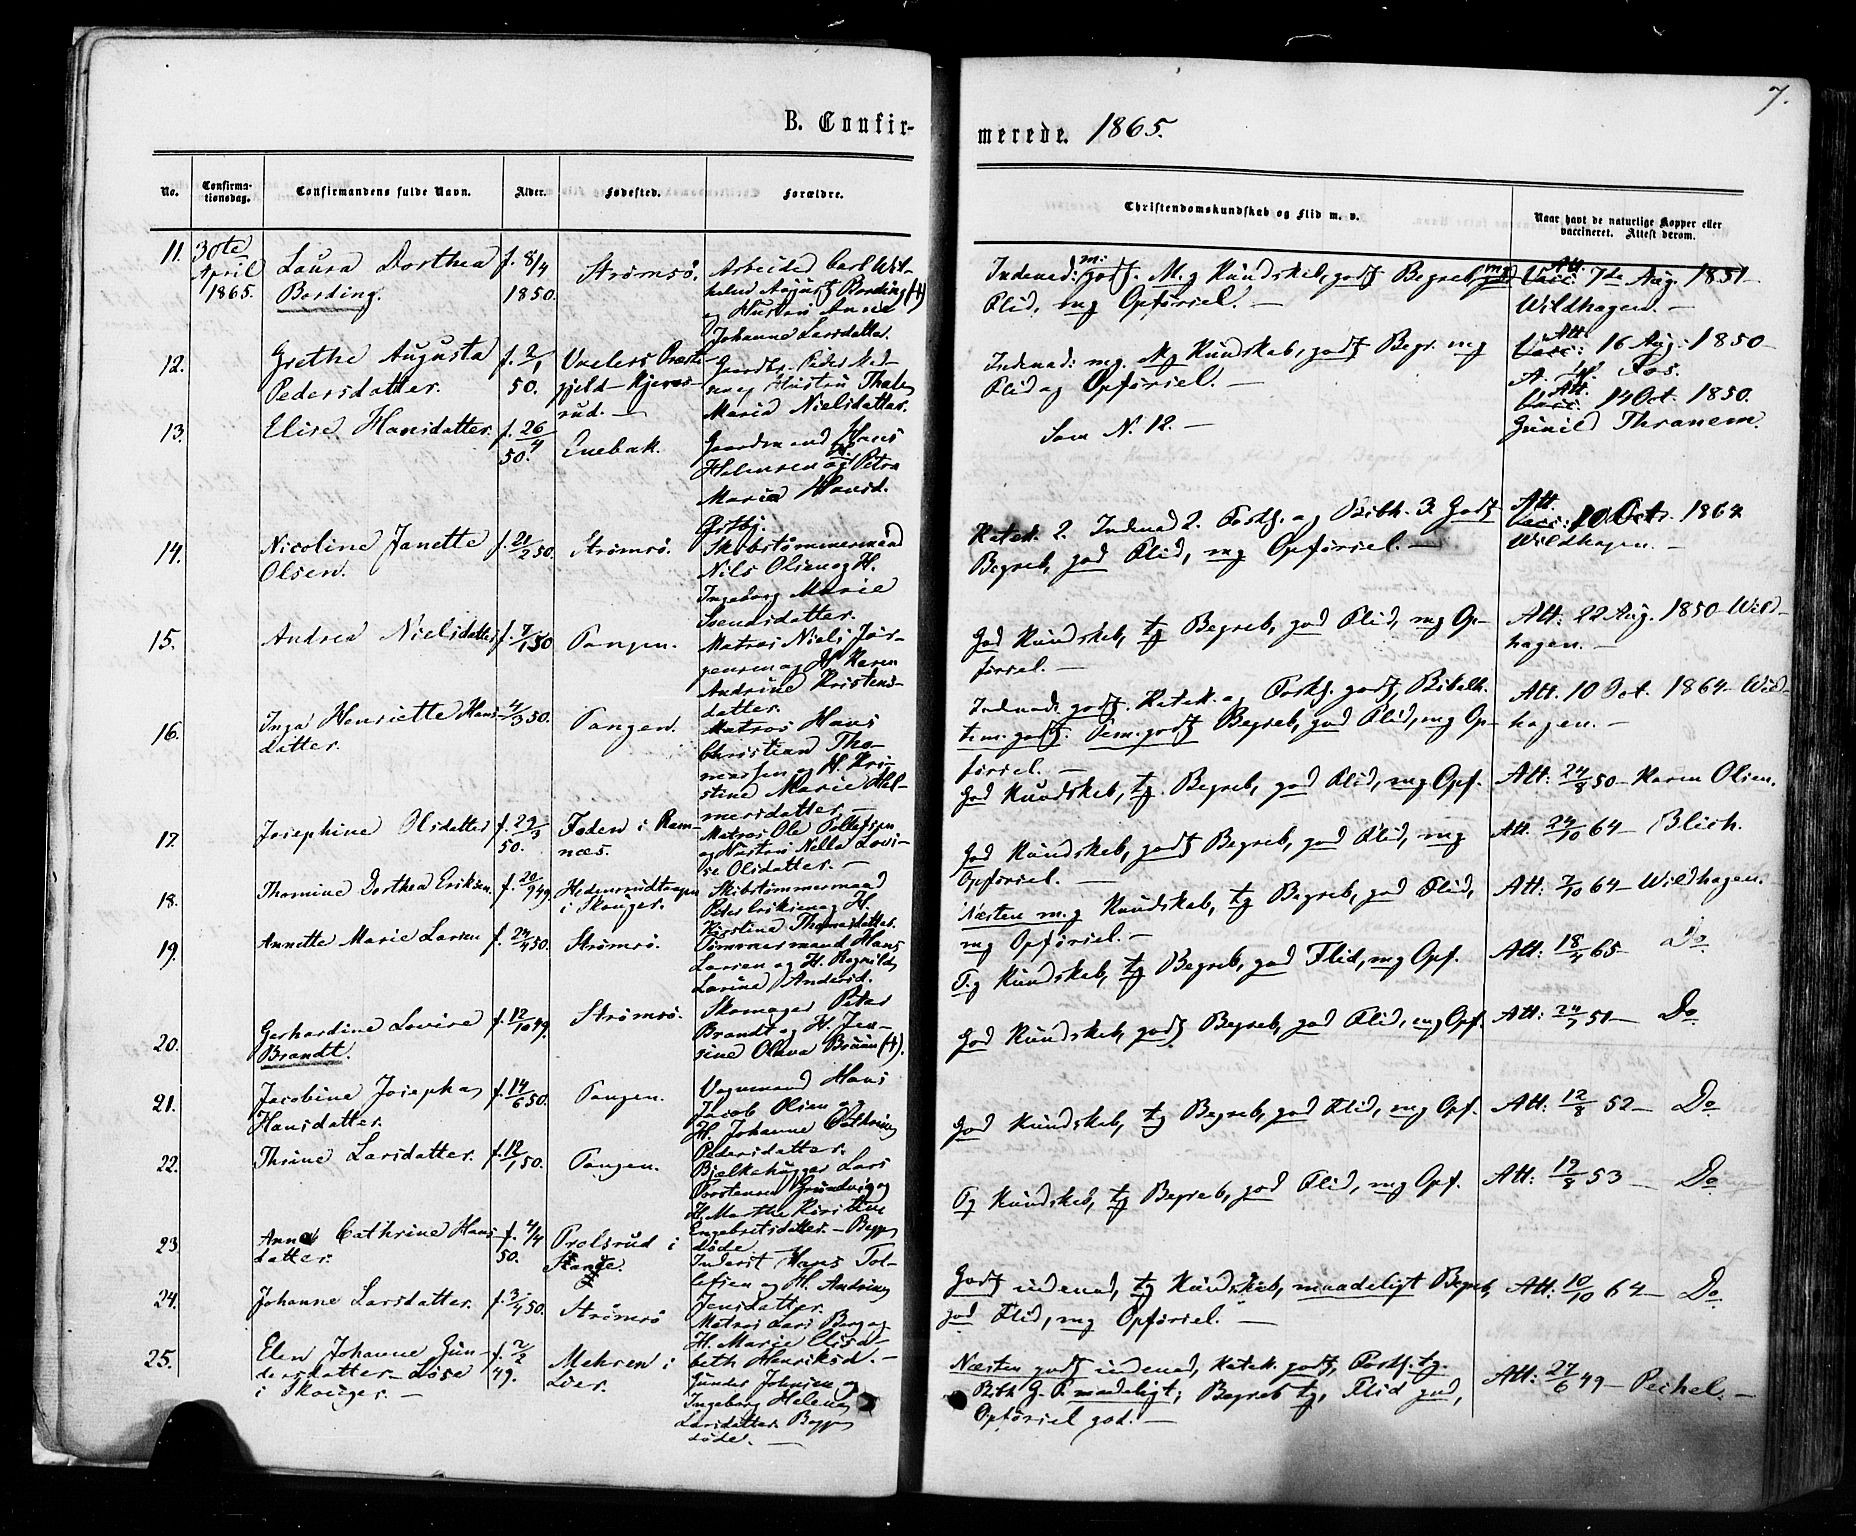 7.
B. Confir-
merede. 1865.
No.
Confirma-
tionsdag.
Confirmandens fulde Navn.
Alder.
Fødested.
Forældre.
Christendomskundskab og Flid m. v.
Naar havt de naturlige Kopper eller
vaccineret. Attest derom.
11. 30te April 1865.
Laura Dorthea
Bording.
f. 8/4
1850.
Strømsø.
Arbeider Carl Wil-
helm August Bording (†)
og Hustru
Johanne Larsdatter.
Indenad: m: godt. M.g Kundskab, godt Begreb, mg
Flid, mg Opførsel. —
Att. 7de Aug. 1851-
Wildhagen. —
12.
Grethe Augusta
Pedersdatter.
f. 2/1
50.
Vaalers Præste-
gjeld
rud. —
Gaardbr. Peder
Hustru
Maria Nielsdatter.
Indenad: mg. Mg Kundskab, godt Begr. mg
Flid og Opførsel. —
Att. 16 Aug. 1850-
Fos.
13.
Elise Hansdatter.
f. 26/4
50.
Enebak.
Gaardmand Hans
Halvorsen og H. Petra
Maria Hansd.
Østby.
Som N. 12. —
Att. 14 Oct. 1850.
Gunild Thranem.
14.
Nicoline Janette
Olsen.
f. 21/2 50.
Strømsø.
Skibstømmermand
Nils Olsen og H.
Ingeborg Marie
Svendsdatter.
Katek. 2. Indenad 2. Forkl. og Bibh. 3. Godt
Begreb, god Flid, mg Opførsel. —
Att. 10 Oct. 1864
Wildhagen. —
15.
Andrea Nielsdatter
f. 7/1 50
Tangen.
Matros Niels Jør-
gensen og H. Karen
Andrine Kristens-
datter.
God Kundskab, tg Begreb, god Flid, mg Op-
førsel. —
Att: 22 Aug. 1850- Wild-
hagen. —
16.
Inga Henriette Hans-
datter.
f. 4/3 50.
Tangen.
Matros Hans
Christian Tho-
massen og H. Kri-
stine Marie Hel-
mersdatter. —
Indenad: godt. Katek. og Forkl. godt, Bibelh.
tem. godt. Tem. godt Begreb, god Flid, mg Op-
førsel. —
Att. 10 Oct. 1864- Wild-
hagen. —
17.
Josephine Olsdatter
f. 29/3
50.
Foden i Ram-
næs.
Matros Ole Tollefsen
og Hustru Nella Lovi-
se Olsdatter. —
God Kundskab, tg Begreb, god Flid, mg Opf.
Att: 24/8 50- Karen Olsen.
18.
Thomine Dorthea Eriksen.
f. 20/9 49.
i Skouger.
Skibstømmermand
Peder Eriksen og H.
Kirstine Thomasdatter.
God Kundskab, godt Begreb, god Flid, mg
Opførsel. —
Att. 24/10 64- Blich.
19.
Annette Marie Larsen
f. 24/4 50.
Strømsø.
Tømmermand Hans
Larsen og H. Ragnild
Larine Andersd.
Næsten m.g Kundskab, tg Begreb, god Flid,
mg Opførsel. —
Att: 7/10 64- Wildhagen.
T.g Kundskab, tg Begreb, god Flid, mg Opf.
Att: 18/4 65- Do
20.
Gerhardine Lovise
Brandt.
f. 12/10 49.
Strømsø.
Skomager Peter
Brandt og H. Jen-
sine Olava Bruun (†).
God Kundskab, godt Begreb, god Flid, mg Opf.
Att: 24/7 51- Do
21.
Jacobine Josepha
Hansdatter.
f. 14/6 50.
Tangen.
Vognmand Hans
Jacob Olsen og
H. Johanne Cathrine
Pedersdatter.
God Kundskab, tg Begreb, god Flid, mg Opf.
Att: 12/8 52- Do
22.
Thrine Larsdatter.
f. 12/1 50.
Tangen.
Bjelkehugger Lars
Torstensen Grundvig og
H. Marthe Kirstine
Engebretsdatter. — Begge
døde. —
Tg Kundskab, tg Begreb, god Flid, mg Opf.
Att: 12/8 53- Do
23.
Anna Cathrine Hans-
datter.
f. 4/4
50.
Prolsrud i
Stange.
Inderst Hans Tol-
lefsen og H. Andrine
Jensdatter.
Godt indenad, tg Kundskab, maadeligt Begreb,
god Flid, mg Opførsel. —
Att: 10/10 64- Do
24.
Johanne Larsdatter.
f. 3/4 50.
Strømsø
Matros Lars Berg og
H. Marie Elisa-
beth Henriksd. —
25.
Elen Johanne Gun-
dersdatter
i Skouger. —
f. 2/2
49.
Mehren i
Lier.
Gunder Johnsen og
Ingeborg Helene
Larsdatter. Begge
døde. —
Næsten godt indenad, Katek. godt, Forkl. tg.
Bibh. maadeligt; Begreb tg, Flid god,
Opførsel god. —
Att: 27/6 49- Peichel. —